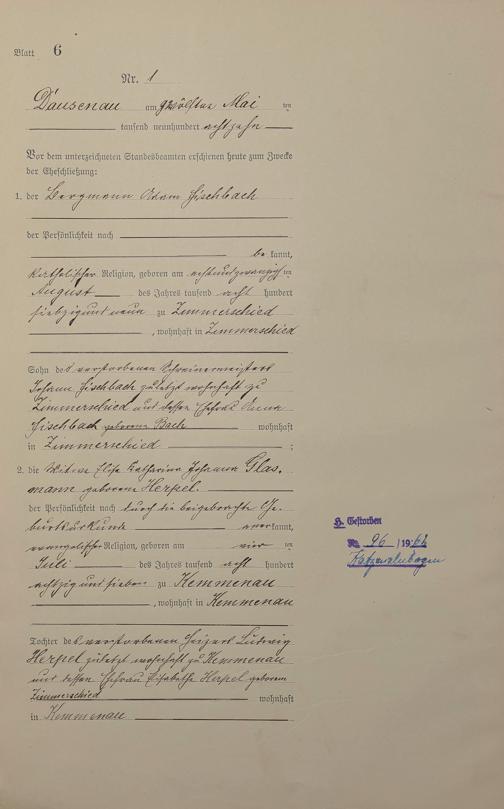 Blatt 6
Nr. 1
Dausenau am zwölften Mai ten
tausend neunhundert achtzehn
Vor dem unterzeichneten Standesbeamten erschienen heute zum Zwecke
der Eheschließung:
1. der Bergmann Adam Fischbach
der Persönlichkeit nach
be kannt,
katholischer Religion, geboren am achtundzwanzigsten
August des Jahres tausend acht hundert
siebzigundneun zu Zimmerschied
, wohnhaft in Zimmerschied
Sohn des verstorbenen Schreinermeisters
Johann Fischbach zuletzt wohnhaft zu
Zimmerschied und dessen Ehefrau Anna
Fischbach geborene Bach wohnhaft
in Zimmerschied ;
2. die Witwe Elise Katharina Johanna Glas-
mann geborene Herpel.
der Persönlichkeit nach durch die beigebrachte Ge-
burtsurkunde anerkannt,
evangelischer Religion, geboren am vier ten
Juli des Jahres tausend acht hundert
achtzig und sieben zu Kemmenau
, wohnhaft in Kemmenau
Tochter des verstorbenen Heizers Ludwig
Herpel zuletzt wohnhaft zu Kemmenau
und dessen Ehefrau Elisabethe Herpel geborene
Zimmerschied wohnhaft
in Kemmenau
H. Gestorben
Nr. 96 /1962
Katzenelnbogen